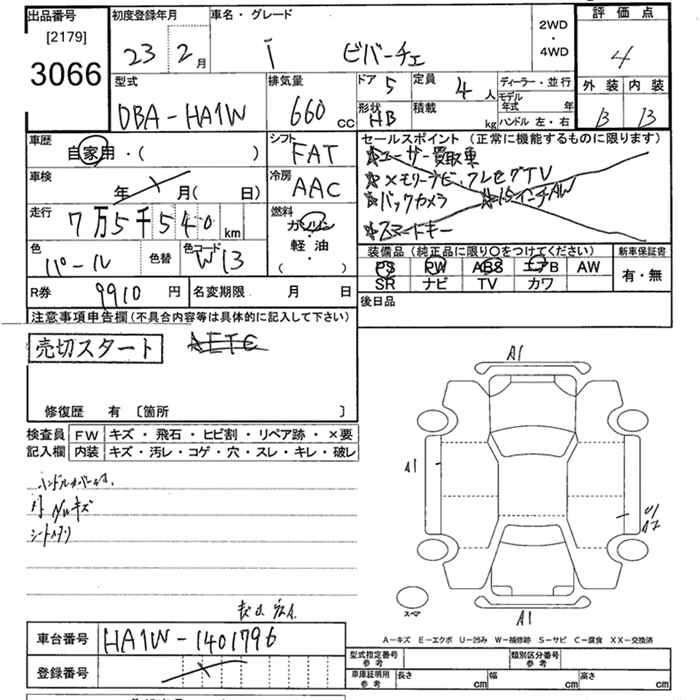 出品番号
[2179]
3066
初度登録年月
23 2月
車名・グレード
i ビバーチェ
2WD
・
4WD
評価点
4
型式
DBA-HA1W
排気量
660 cc
ドア 5
定員 4人
ディーラー・並行
形状 HB
積載 kg
モデル年式 年
ハンドル 左・右
外装 内装
B B
車歴
自家用・( )
シフト
FAT
セールスポイント (正常に機能するものに限ります)
☆ユーザー買取車
☆メモリーナビ、フルセグTV
☆バックカメラ ☆15インチAW
☆スマートキー
車検
年 月( 日)
冷房
AAC
走行
7万5千540km
燃料
ガソリン
・
軽油
( )
色
パール
色替
色コード
W13
装備品 (純正品に限り○をつけてください)
新車保証書
PS PW ABS エアB AW
SR ナビ TV カワ
有・無
R券 9910円
名変期限 月 日
後日品
注意事項申告欄 (不具合内容等は具体的に記入して下さい)
売切スタート
☆ETC
修復歴 有 〔箇所 〕
検査員
記入欄
FW キズ・飛石・ヒビ割・リペア跡・×要
内装 キズ・汚レ・コゲ・穴・スレ・キレ・破レ
A1
A1
A1
スペア
A-キズ E-エクボ U-凹み W-補修跡 S-サビ C-腐食 XX-交換済
車台番号 HA1W-1401796
登録番号
型式指定番号
参考
類別区分番号
参考
車庫証明用
参考
長さ cm
幅 cm
高さ cm